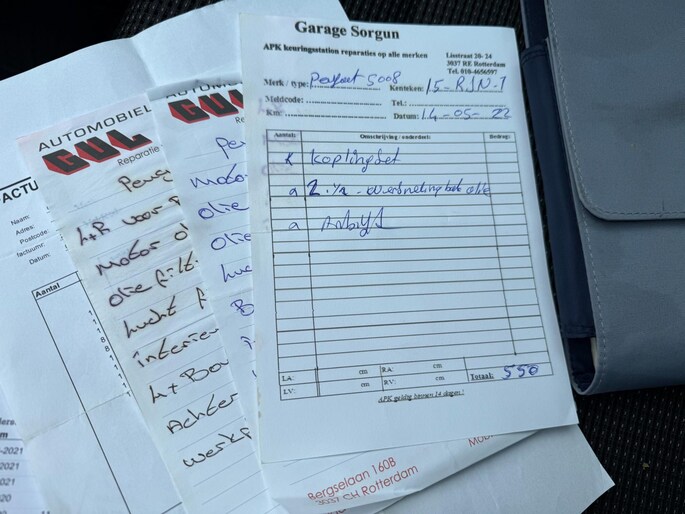 Garage Sorgun
APK keuringsstation reparaties op alle merken
Lisstraat 20- 24
3037 RE Rotterdam
Tel. 010-4656597
Merk / type: Peugeot 5008 Kenteken: 15-RJN-1
Meldcode: Tel.:
Km: Datum: 14-05-22
Aantal: Omschrijving / onderdeel: Bedrag:
koplingset
2
Totaal: 550
LA: cm RA: cm
LV: cm RV: cm
APK geldig binnen 14 dagen !
AUTOMOBIEL
GUL
Reparatie
L+R voor
motor
olie filt
lucht f
interieu
L+R
Achter
werkp
AUTOMOBIEL
GUL
Reparatie
motor
olie
olie
luch
FACTU
Naam:
Adres:
Postcode:
factuurnr:
Datum:
Aantal
1
1
8
1
1
1
-2021
-2021
Bergselaan 160B
3037 CH Rotterdam